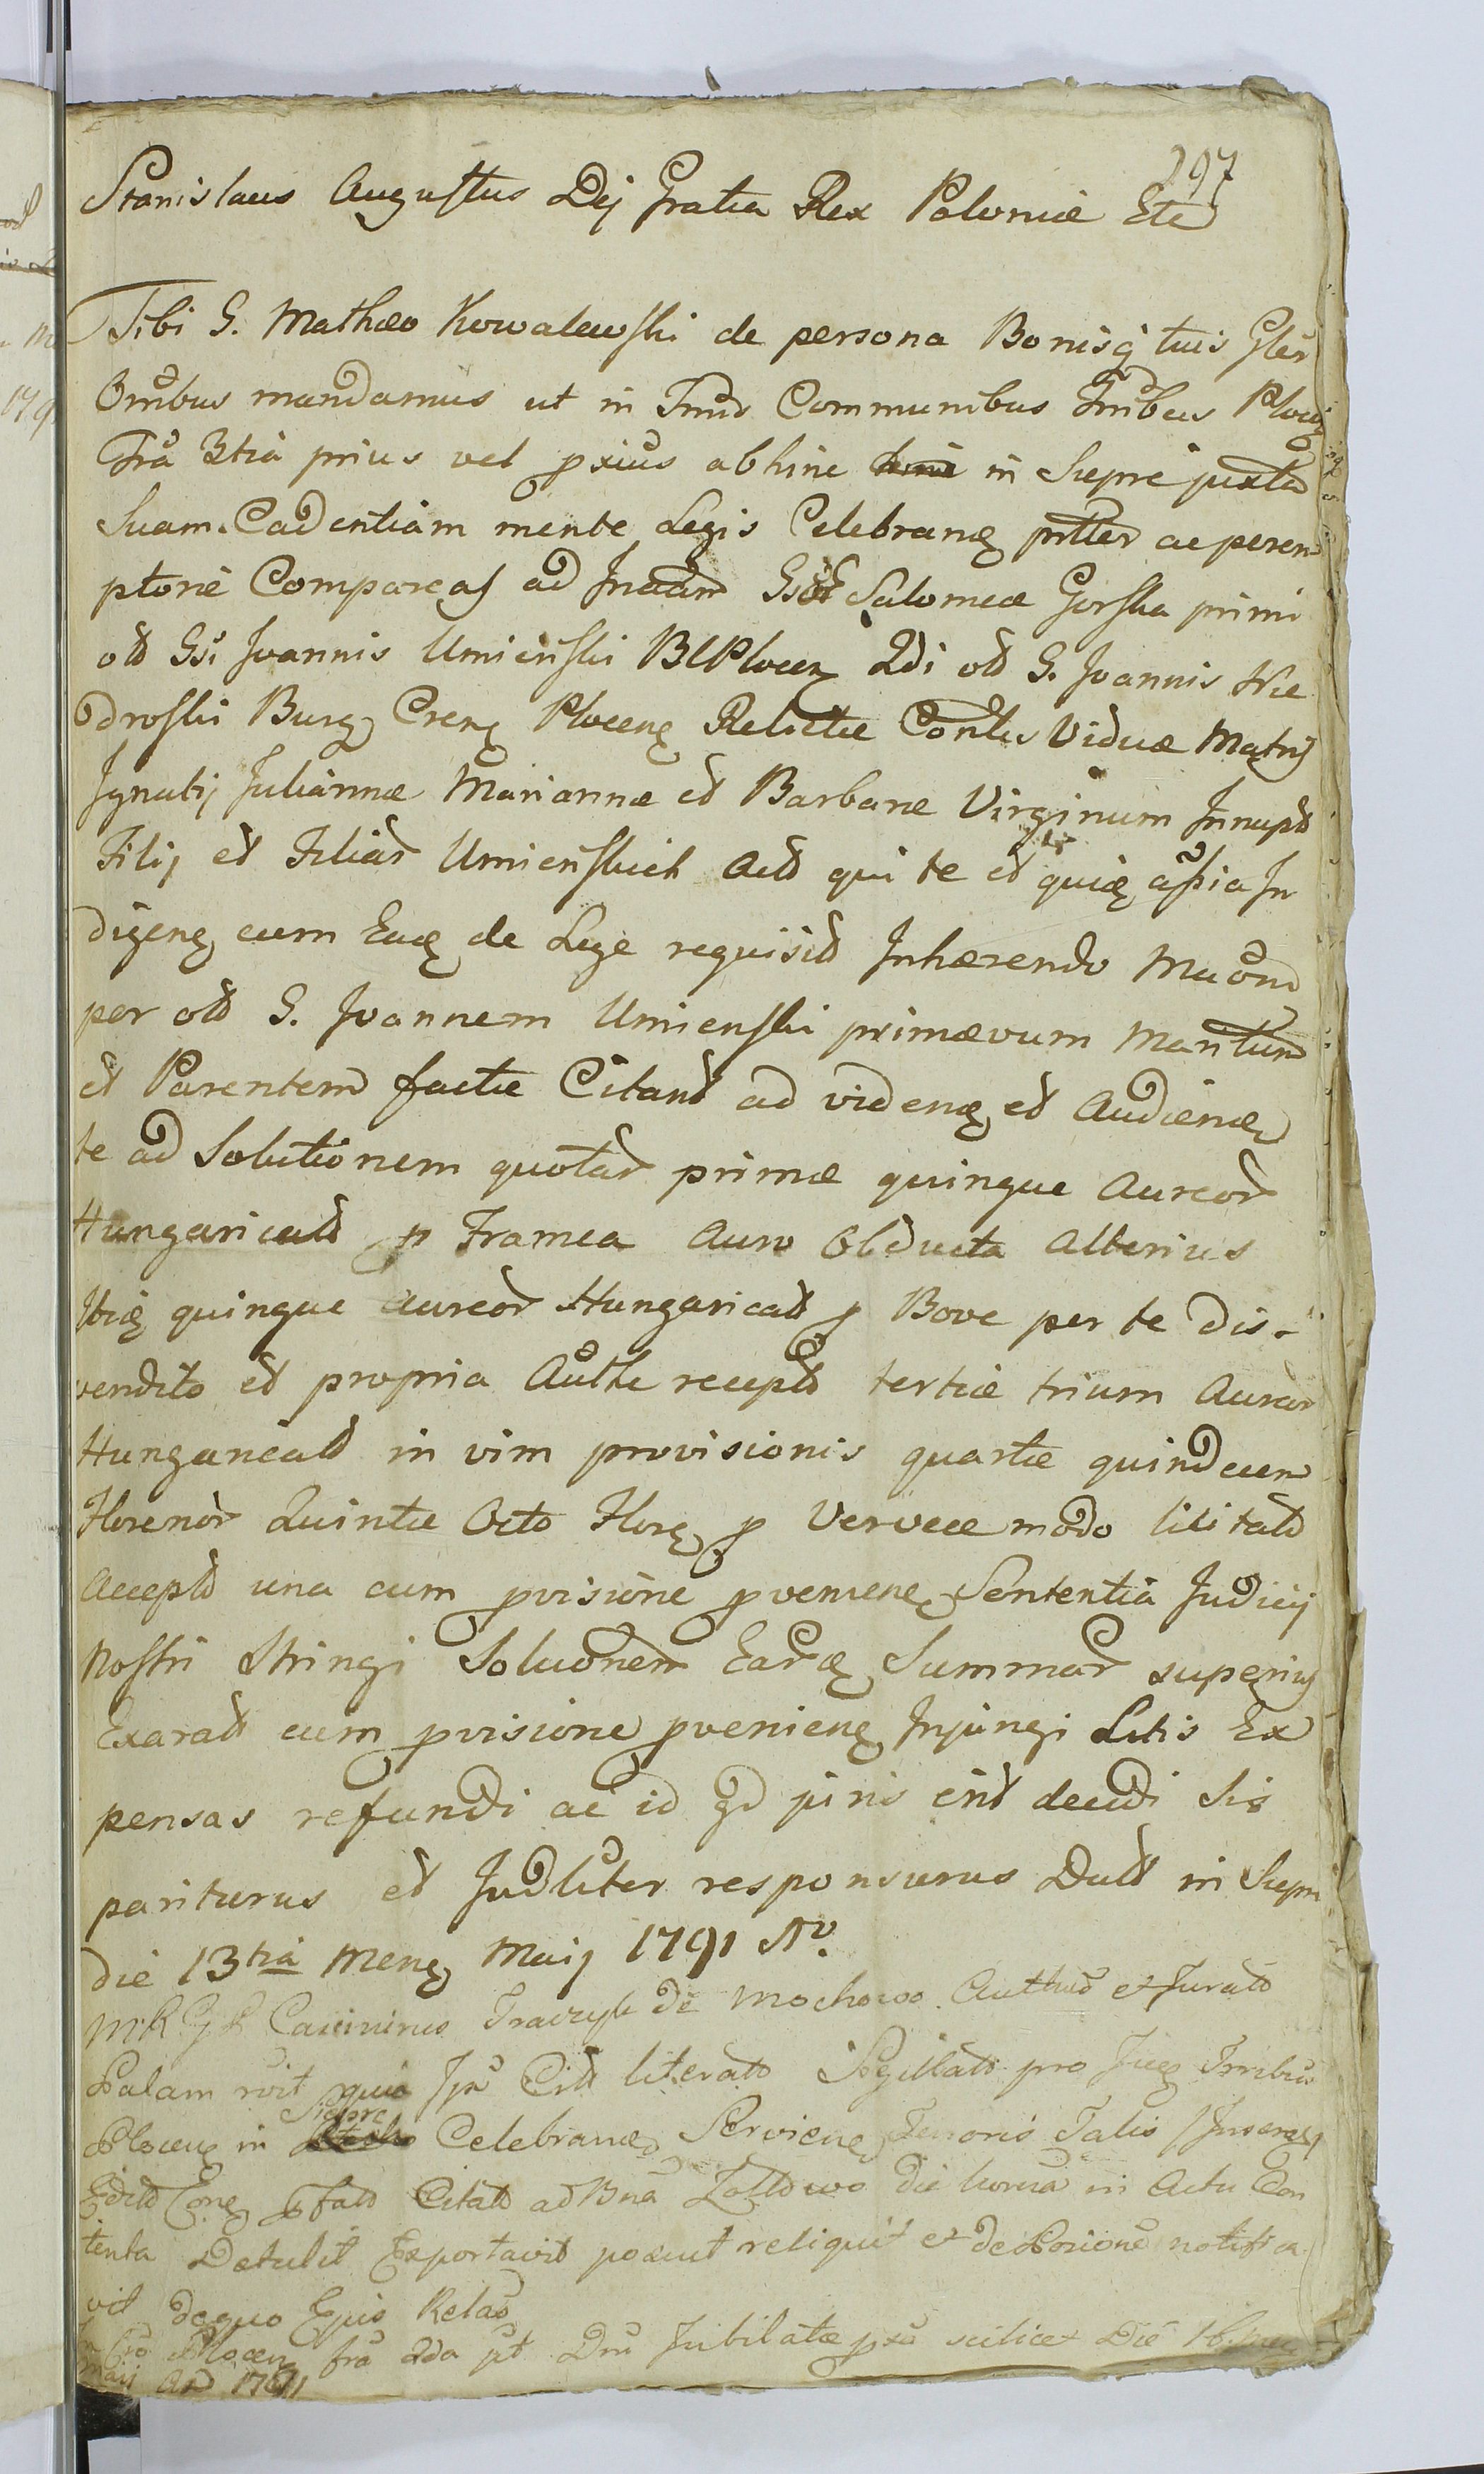 297
Stanislaus Augustus Dej Gratia Rex Poloniæ Etc
Tibi G. Mathæo Kowalewski de persona Bonisq tuis Gler
Omnibus mandamus ut in Trnis Communibus Trribus Plocen
Fra 3tia prius vel pxius abhinc in Sierpc juxta
Suam Cadentiam mente Legis Celebranę prtter ac peren
ptorie Compareas ad Jnstam Gsæ Salomeæ Gorska primi
olt Gsi Joannis Umieński BLPlocen 2di olt G. Joannis Nie
droski Burg Cren Ploceng Relictæ Contis Viduæ Matris
Jgnatij Juliannæ Mariannæ et Barbaræ Virginum Jnnupt
Filij et Filiar Umieńskich Act qui te et quię assia Jn
digeng cum Eaę de Lege requisit Jnhærendo Mtaõni
per olt G. Joannem Umienski primævum Maritum
et Parentem factæ Citant ad videnę et Audienę
te ad Solutionem quotar primæ quinque Aureor
Hungaricalt p Framea Auro Obducta Alterius
Itię quinque Aureor Hungaricalt p Bove per te dis-
vendito et propria Autthe recept tertiæ trium Aureor
Hungaricalt in vim provisionis quartæ quindecem
Florenor Quintæ Octo Flore p Vervece modo licitato
Accept una cum pvisione pveniene Sententia Judicij
Nostri Stringi Soluõnem Earę Summar superius
Exarat cum pvisione pvenieng Jnjungi Litis Ex
pensas refundi ac id qd juris erit decidi Sis
pariturus et Judliter responsurus Datt in Sierpc
die 13tia Meng Maij 1791 Ao.
M.R.G.R. Casimirus Traczyk de Mochowo Autthus et Jurat
Palam rvit quia Jpe Citt literatt Sigillatt pro Jueg Trribus
Sierpc
Ploceng in Celebrang Servieng Tenoris Talis /Jnserat/
Editt Corę pfatt Citatt ad Bna die herna in Actu Con
tenta Detulit Exportavit posuit reliquit et de Posione notifica
vit de quo Ejus Relao
Cro Plocen fra 2da pt Dnm Jubilate pxa scilicet Die 16
Maii AD 1791